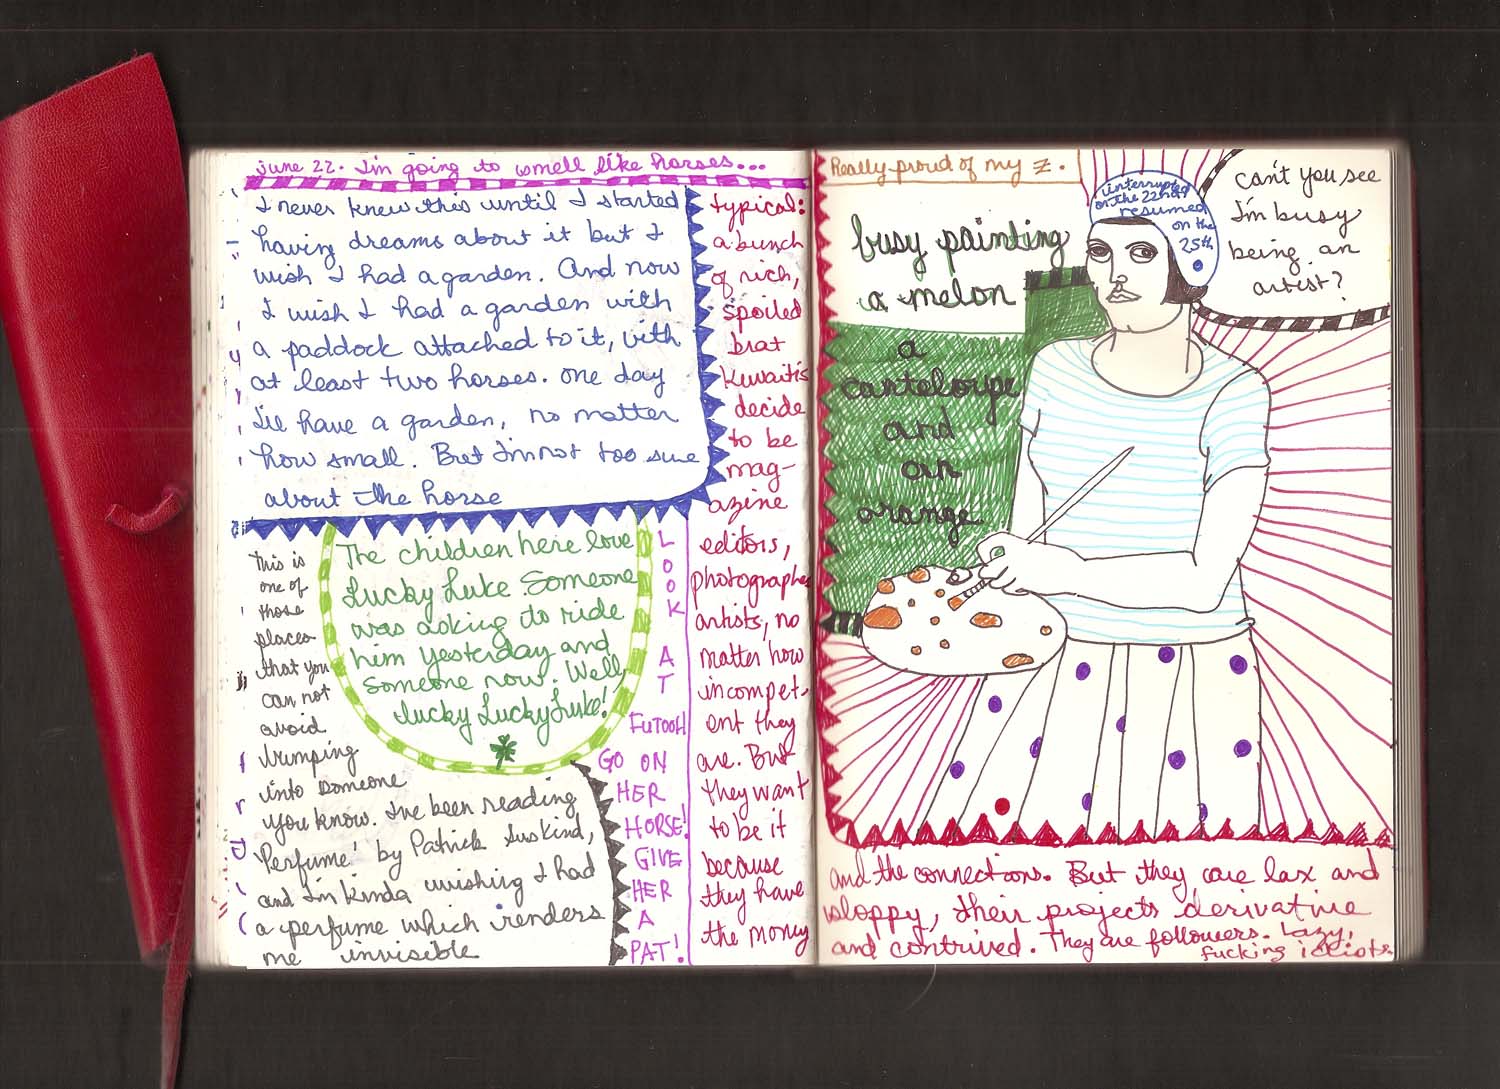 june 22. I'm going to smell like horses...
I never knew this until I started
having dreams about it but I
wish I had a garden. And now
I wish I had a garden with
a paddock attached to it, with
at least two horses. one day
I'll have a garden, no matter
how small. But I'm not too sure
about the horse
The children here love
Lucky Luke. Someone
was asking to ride
him yesterday and
someone now. Well,
lucky LuckyLuke!
This is
one of
those
places
that you
can not
avoid
bumping
into someone
you know. I've been reading
'Perfume' by Patrick Suskind,
and I'm kinda wishing I had
a perfume which renders
me invisible
L
O
O
K
A
T
FUTOOH
GO ON
HER
HORSE!
GIVE
HER
A
PAT!
typical:
a bunch
of rich,
spoiled
brat
Kuwaitis
decide
to be
mag-
azine
editors,
photographers
artists, no
matter how
incompet-
ent they
are. But
they want
to be it
because
they have
the money
and the connections. But they are lax and
sloppy, their projects derivative
and contrived. They are followers. Lazy,
fucking idiots
Really proud of my z.
busy painting
a melon
a
canteloupe
and
an
orange
interrupted
on the 22nd
resumed
on the
25th
can't you see
I'm busy
being an
artist?